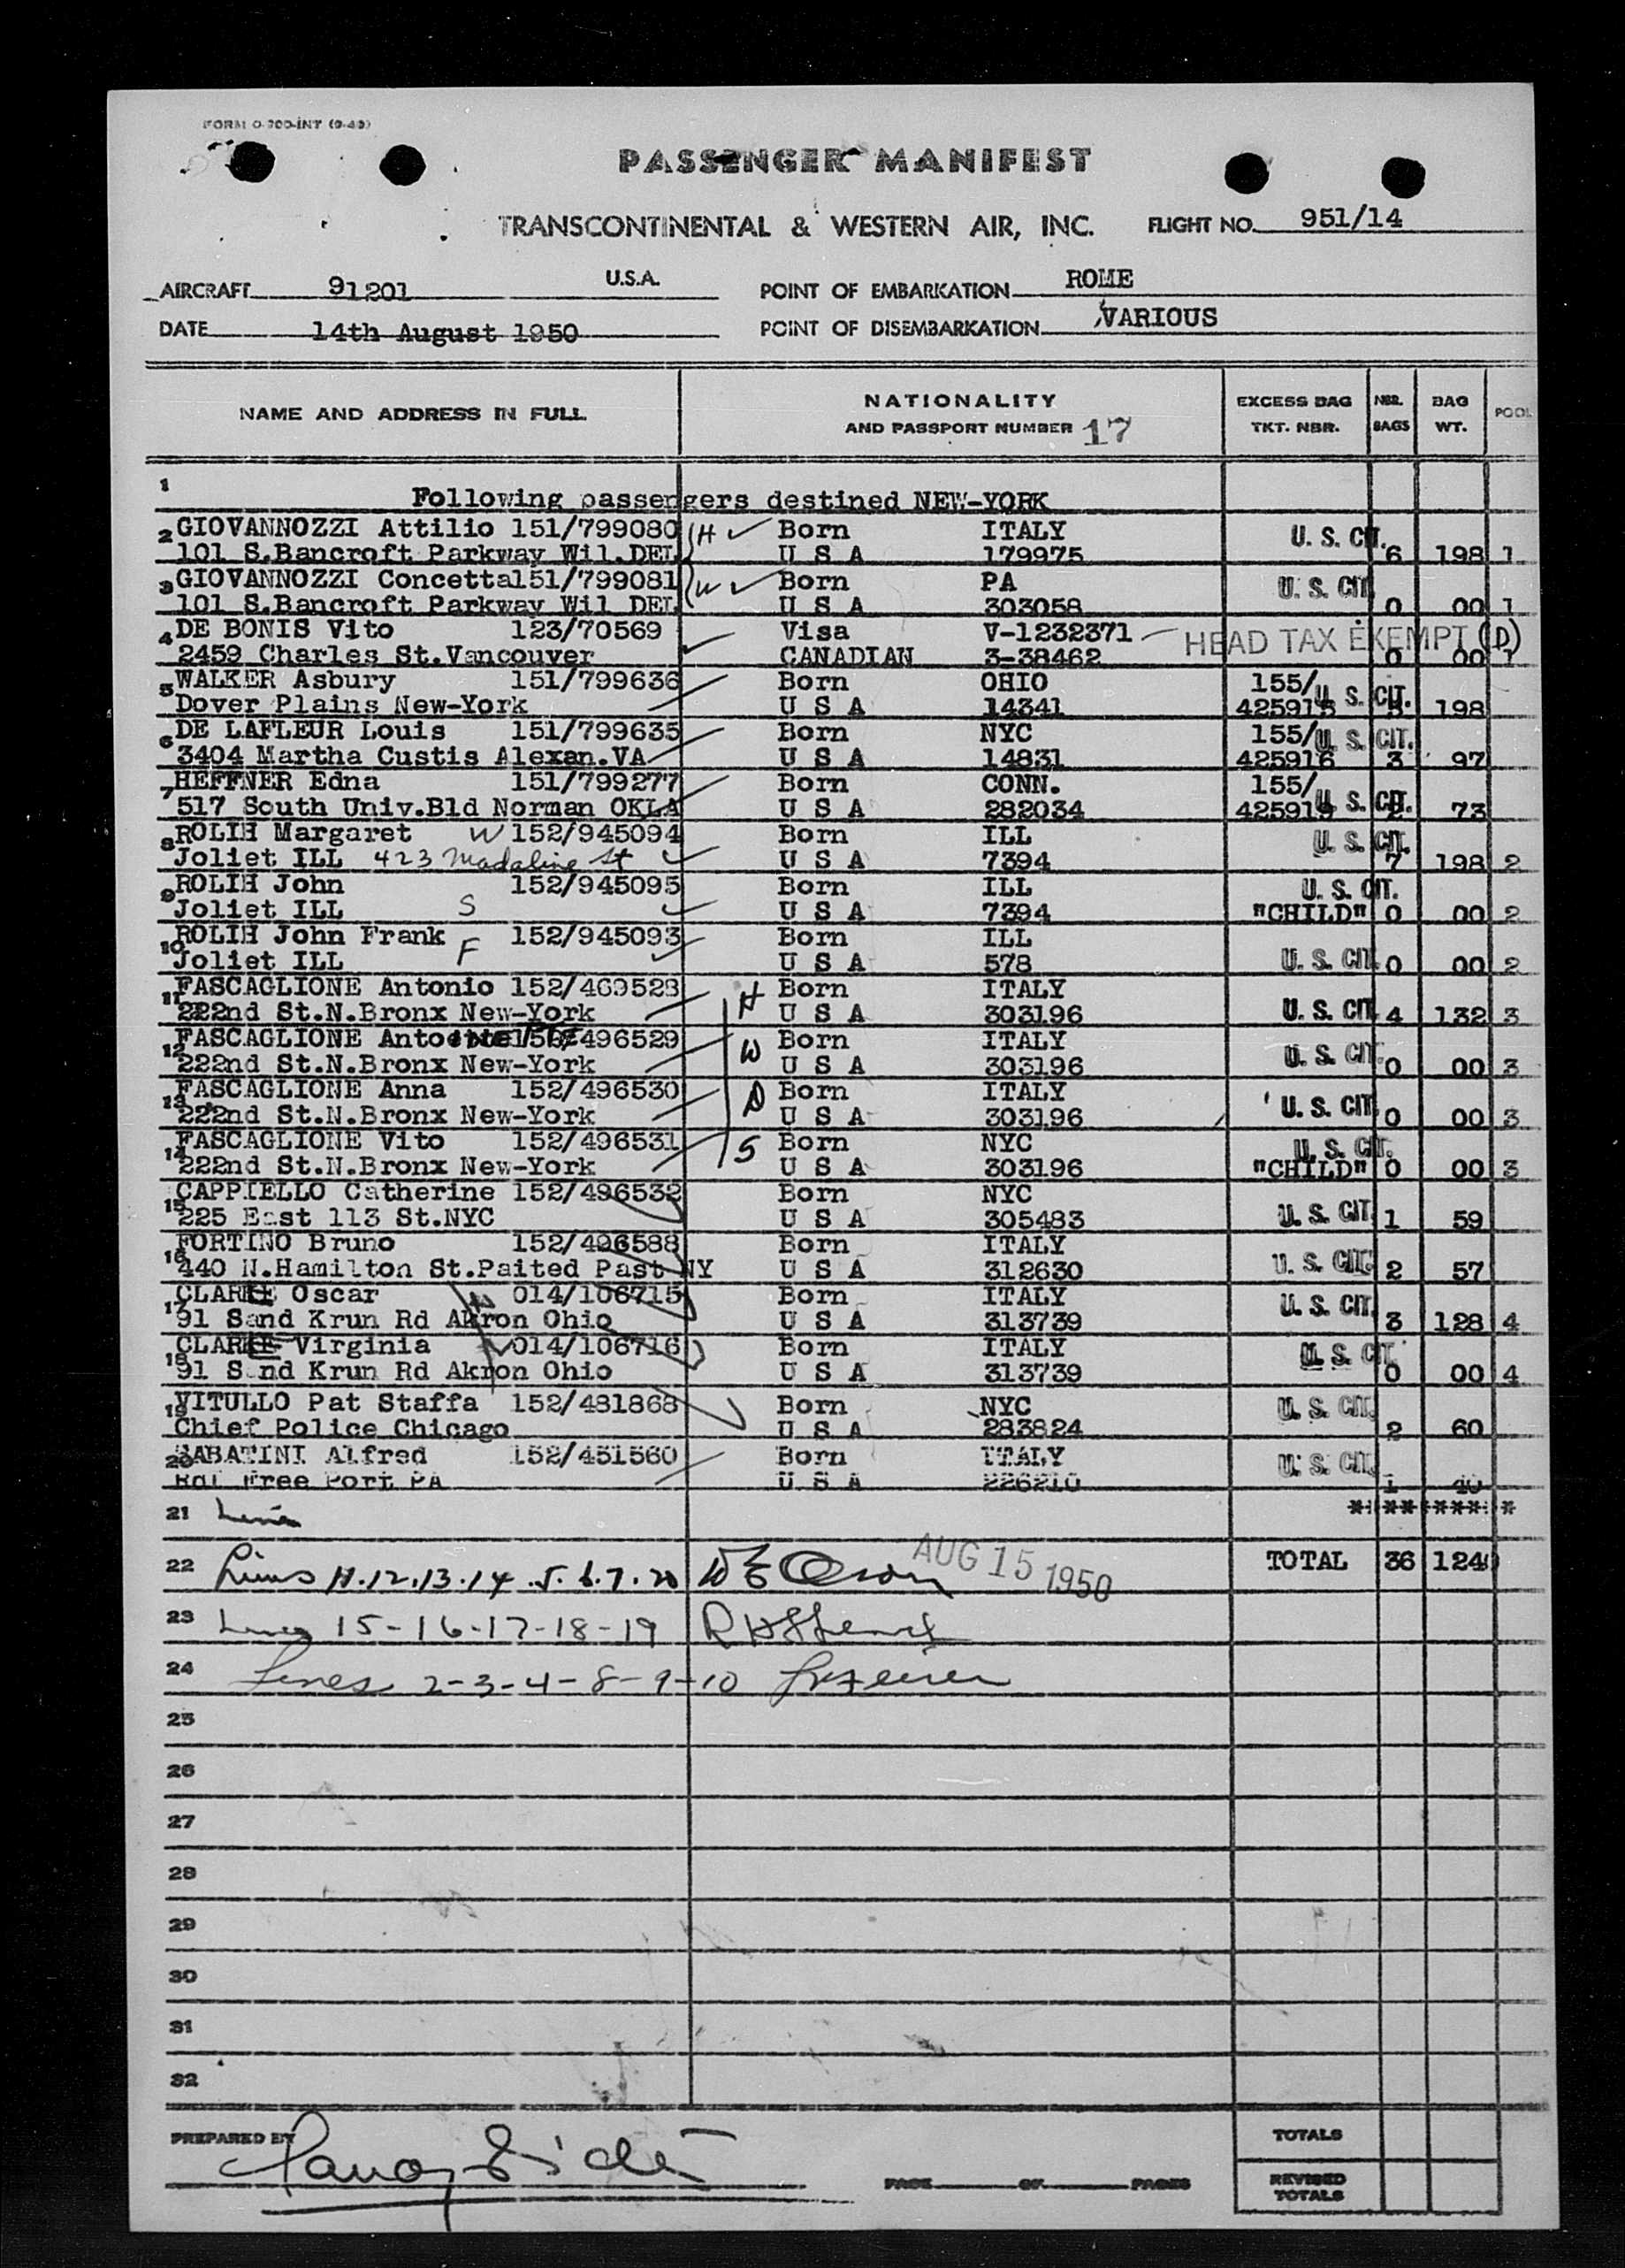 FORM O-700-INT (9-49)
PASSENGER MANIFEST
TRANSCONTINENTAL & WESTERN AIR, INC. FLIGHT NO. 951/14
AIRCRAFT 91201 U.S.A. POINT OF EMBARKATION ROME
DATE 14th August 1950 POINT OF DISEMBARKATION VARIOUS
NAME AND ADDRESS IN FULL NATIONALITY AND PASSPORT NUMBER 17 EXCESS BAG TKT. NBR. NBR. BAGS BAG WT. POOL
1 Following passengers destined NEW-YORK
2 GIOVANNOZZI Attilio 151/799080 H Born ITALY U. S. CIT.
101 S.Bancroft Parkway Wil.DEL U S A 179975 6 198 1
3 GIOVANNOZZI Concetta151/799081 W Born PA U. S. CIT.
101 S.Bancroft Parkway Wil DEL U S A 303058 0 00 1
4 DE BONIS Vito 123/70569 Visa V-1232371 HEAD TAX EXEMPT (D)
2459 Charles St.Vancouver CANADIAN 3-38462 0 00 1
5 WALKER Asbury 151/799636 Born OHIO 155/ U. S. CIT.
Dover Plains New-York U S A 14341 198
6 DE LAFLEUR Louis 151/799635 Born NYC 155/ U. S. CIT.
3404 Martha Custis Alexan.VA U S A 14831 425916 3 97
7 HEFFNER Edna 151/799277 Born CONN. 155/ U. S. CIT.
517 South Univ.Bld Norman OKLA U S A 282034 73
8 ROLIH Margaret W 152/945094 Born ILL U. S. CIT.
Joliet ILL 423 Madaline St U S A 7394 7 198 2
9 ROLIH John 152/945095 Born ILL U. S. CIT.
Joliet ILL S U S A 7394 "CHILD" 0 00 2
10 ROLIH John Frank 152/945093 Born ILL
Joliet ILL F U S A 578 U. S. CIT. 0 00 2
11 FASCAGLIONE Antonio 152/469528 H Born ITALY
222nd St.N.Bronx New-York U S A 303196 U. S. CIT 4 132 3
12 FASCAGLIONE 496529 W Born ITALY
222nd St.N.Bronx New-York U S A 303196 U. S. CIT. 0 00 3
13 FASCAGLIONE Anna 152/496530 D Born ITALY
222nd St.N.Bronx New-York U S A 303196 U. S. CIT. 0 00 3
14 FASCAGLIONE Vito 152/496531 S Born NYC U. S. CIT.
222nd St.N.Bronx New-York U S A 303196 "CHILD" 0 00 3
15 CAPPIELLO Catherine 152/496532 Born NYC
225 East 113 St.NYC U S A 305483 U. S. CIT. 1 59
16 FORTINO Bruno 152/496588 Born ITALY
440 N.Hamilton St.Paited Past NY U S A 312630 U. S. CIT. 2 57
17 Oscar 014/106715 Born ITALY U. S. CIT.
91 Sand Krun Rd Akron Ohio U S A 313739 3 128 4
18 Virginia 014/106716 Born ITALY U. S. CIT.
91 Sand Krun Rd Akron Ohio U S A 313739 0 00 4
19 VITULLO Pat Staffa 152/481868 Born NYC U. S. CIT.
Chief Police Chicago U S A 283824 2 60
20 SABATINI Alfred 152/451560 Born ITALY U. S. CIT.
Free Port PA U S A 226210 1 40
21 ***********
22 11.12.13.14 .5.6.7.20 AUG 15 1950 TOTAL 36 1240
23 15-16-17-18-19
24 Lines 2-3-4-8-9-10
25
26
27
28
29
30
31
32
PREPARED BY PAGE OF PAGES TOTALS
REVISED TOTALS